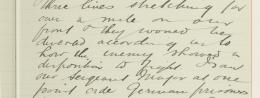 three lines stretching for
over a mile on our
front & they
according as to
how the enemy showed a
disposition to fight. I saw
our Sergeant Major at one
point order German prisoners